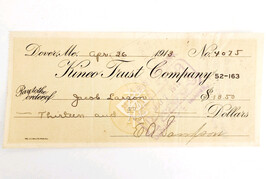 Dover, Me. Apr. 26 1913. No. 4075
Kineo Trust Company 52-163
Pay to the order of Jacob Larson $13.50
Thirteen and Dollars